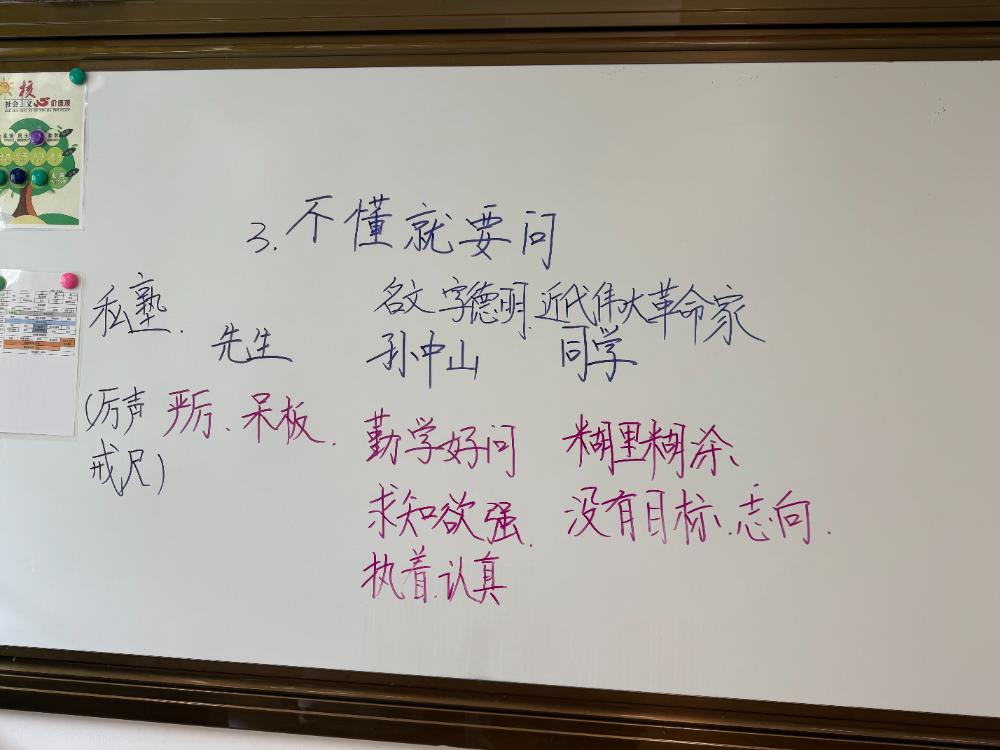 核
社会主义 心 价值观
3.不懂就要问
私塾. 名文 字德明.近代伟大革命家
先生 孙中山 同学
(厉声 严厉、呆板. 勤学好问 糊里糊涂、
戒尺) 求知欲强. 没有目标、志向.
执着.认真